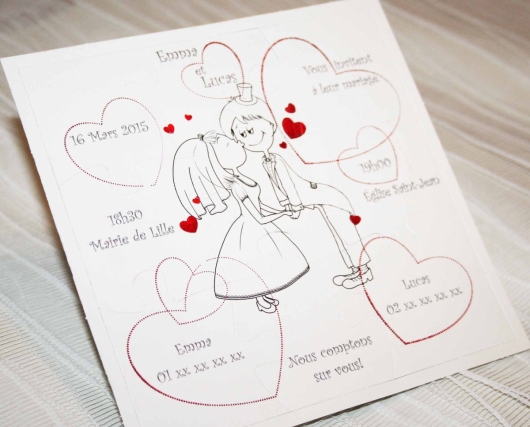 Emma
et
Lucas
Vous invitent
à leur mariage
16 Mars 2015
18h30
Mairie de Lille
19h00
Église Saint-Jean
Emma
01 xx xx xx xx
Lucas
02 xx xx xx xx
Nous comptons
sur vous!